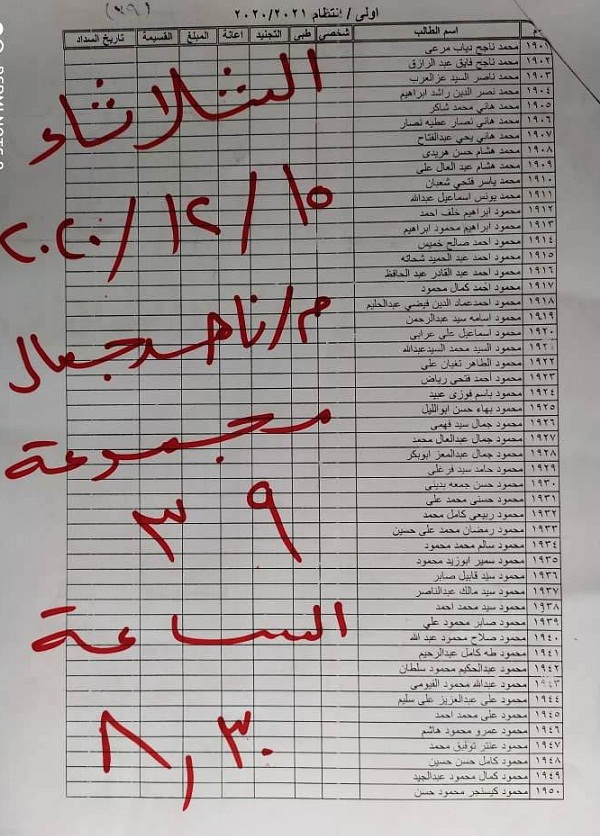 (٣٩)
اولى / إنتظام ٢٠٢٠/٢٠٢١
م اسم الطالب شخصي طبي التجنيد اعانة المبلغ القسيمة تاريخ السداد
١٩٠١ محمد ناجح دياب مرعى
١٩٠٢ محمد ناجح فايق عبد الرازق
١٩٠٣ محمد ناصر السيد عزالعرب
١٩٠٤ محمد نصر الدين راشد ابراهيم
١٩٠٥ محمد هاني محمد شاكر
١٩٠٦ محمد هاني نصار عطيه نصار
١٩٠٧ محمد هاني يحي عبدالفتاح
١٩٠٨ محمد هشام حسن هريدى
١٩٠٩ محمد هشام عبد العال على
١٩١٠ محمد ياسر فتحي شعبان
١٩١١ محمد يونس اسماعيل عبدالله
١٩١٢ محمود ابراهيم خلف احمد
١٩١٣ محمود ابراهيم محمود ابراهيم
١٩١٤ محمود احمد صالح خميس
١٩١٥ محمود احمد عبد الحميد شحاته
١٩١٦ محمود احمد عبد القادر عبد الحافظ
١٩١٧ محمود احمد كمال محمود
١٩١٨ محمود احمدعماد الدين فيضي عبدالحليم
١٩١٩ محمود اسامه سيد عبدالرحمن
١٩٢٠ محمود اسماعيل على عرابى
١٩٢١ محمود السيد محمد السيدعبدالله
١٩٢٢ محمود الطاهر تغيان على
١٩٢٣ محمود أحمد فتحى رياض
١٩٢٤ محمود باسم فوزى عبيد
١٩٢٥ محمود بهاء حسن ابوالليل
١٩٢٦ محمود جمال سيد فهمى
١٩٢٧ محمود جمال عبدالعال محمد
١٩٢٨ محمود جمال عبدالمعز ابوبكر
١٩٢٩ محمود حامد سيد فرغلى
١٩٣٠ محمود حسن جمعه بدينى
١٩٣١ محمود حسنى محمد على
١٩٣٢ محمود ربيعى كامل محمد
١٩٣٣ محمود رمضان محمد على حسين
١٩٣٤ محمود سالم محمد محمود
١٩٣٥ محمود سمير ابوزيد محمود
١٩٣٦ محمود سيد قابيل صابر
١٩٣٧ محمود سيد مالك عبدالناصر
١٩٣٨ محمود سيد محمد احمد
١٩٣٩ محمود صابر محمود علي
١٩٤٠ محمود صلاح محمود عبد الله
١٩٤١ محمود طه كامل عبدالرحيم
١٩٤٢ محمود عبدالحكيم محمود سلطان
١٩٤٣ محمود عبدالله محمود الفيومى
١٩٤٤ محمود على عبدالعزيز على سليم
١٩٤٥ محمود على محمد احمد
١٩٤٦ محمود عمرو محمود هاشم
١٩٤٧ محمود عنتر توفيق محمد
١٩٤٨ محمود كامل حسن حسين
١٩٤٩ محمود كمال محمود عبدالجيد
١٩٥٠ محمود كيسنجر محمود حسن
الثلاثاء
١٥/١٢/٢٠٢٠
م/ناهد جمال
مجموعة
٣٩
الساعة
٨,٣٠